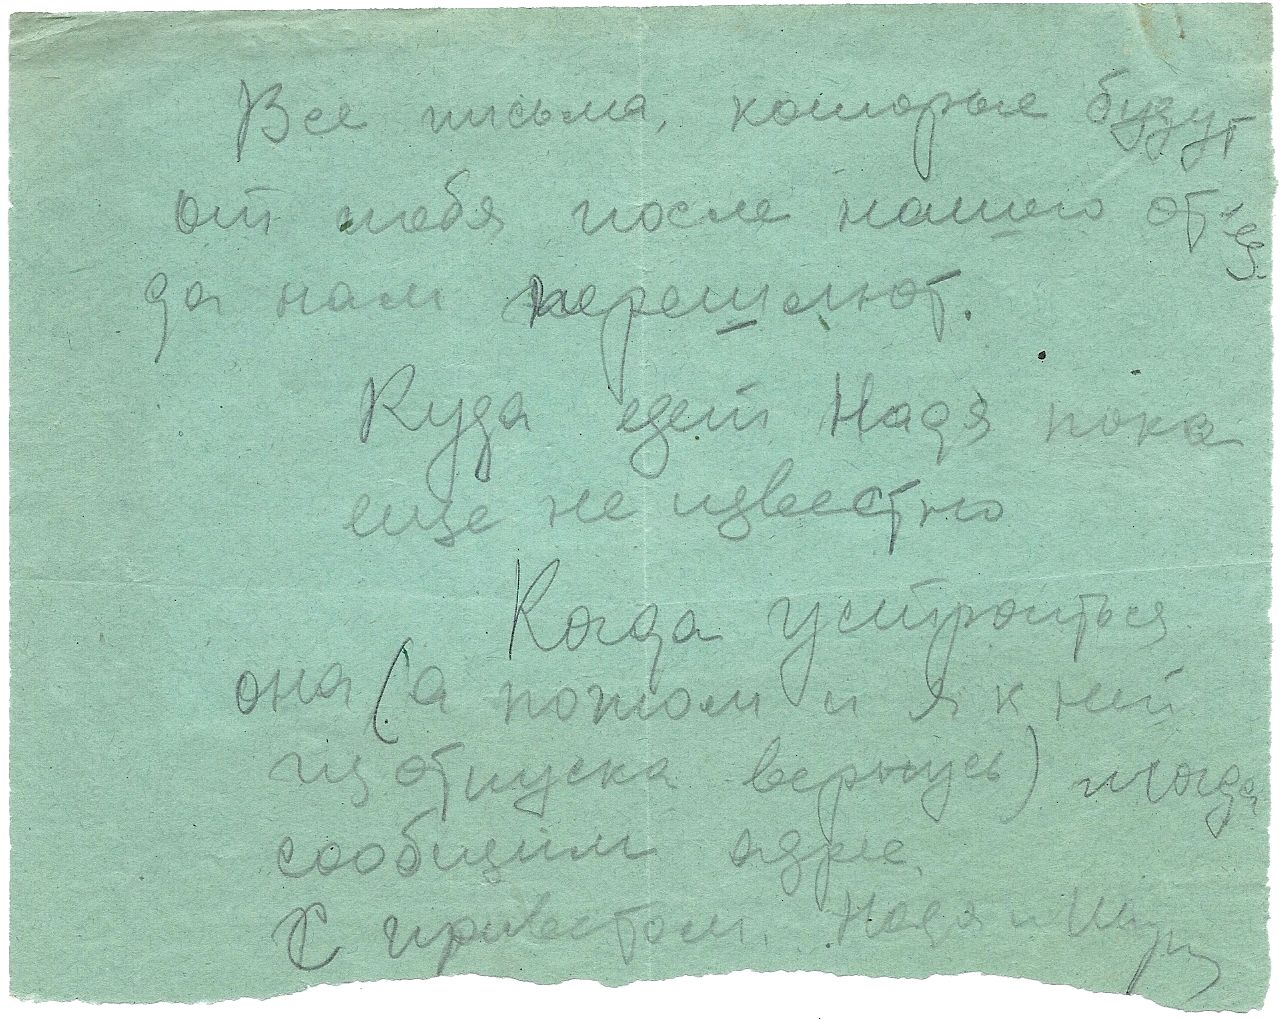 Все письма, которые будут
от тебя после нашего отъез-
да нам перешлют.
Куда едет Надя пока
еще не известно
Когда устроиться
она (а потом и я к ней
из отпуска вернусь) тогда
сообщим адрес
С приветом. Надя и